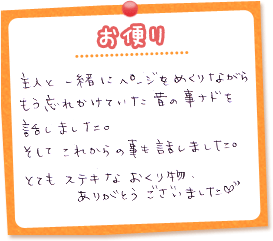 お便り
主人と一緒にページをめくりながら
もう忘れかけていた昔の事ナドを
話しました。
そして これからの事も話しました。
とても ステキな おくり物、
ありがとう ございました♡"